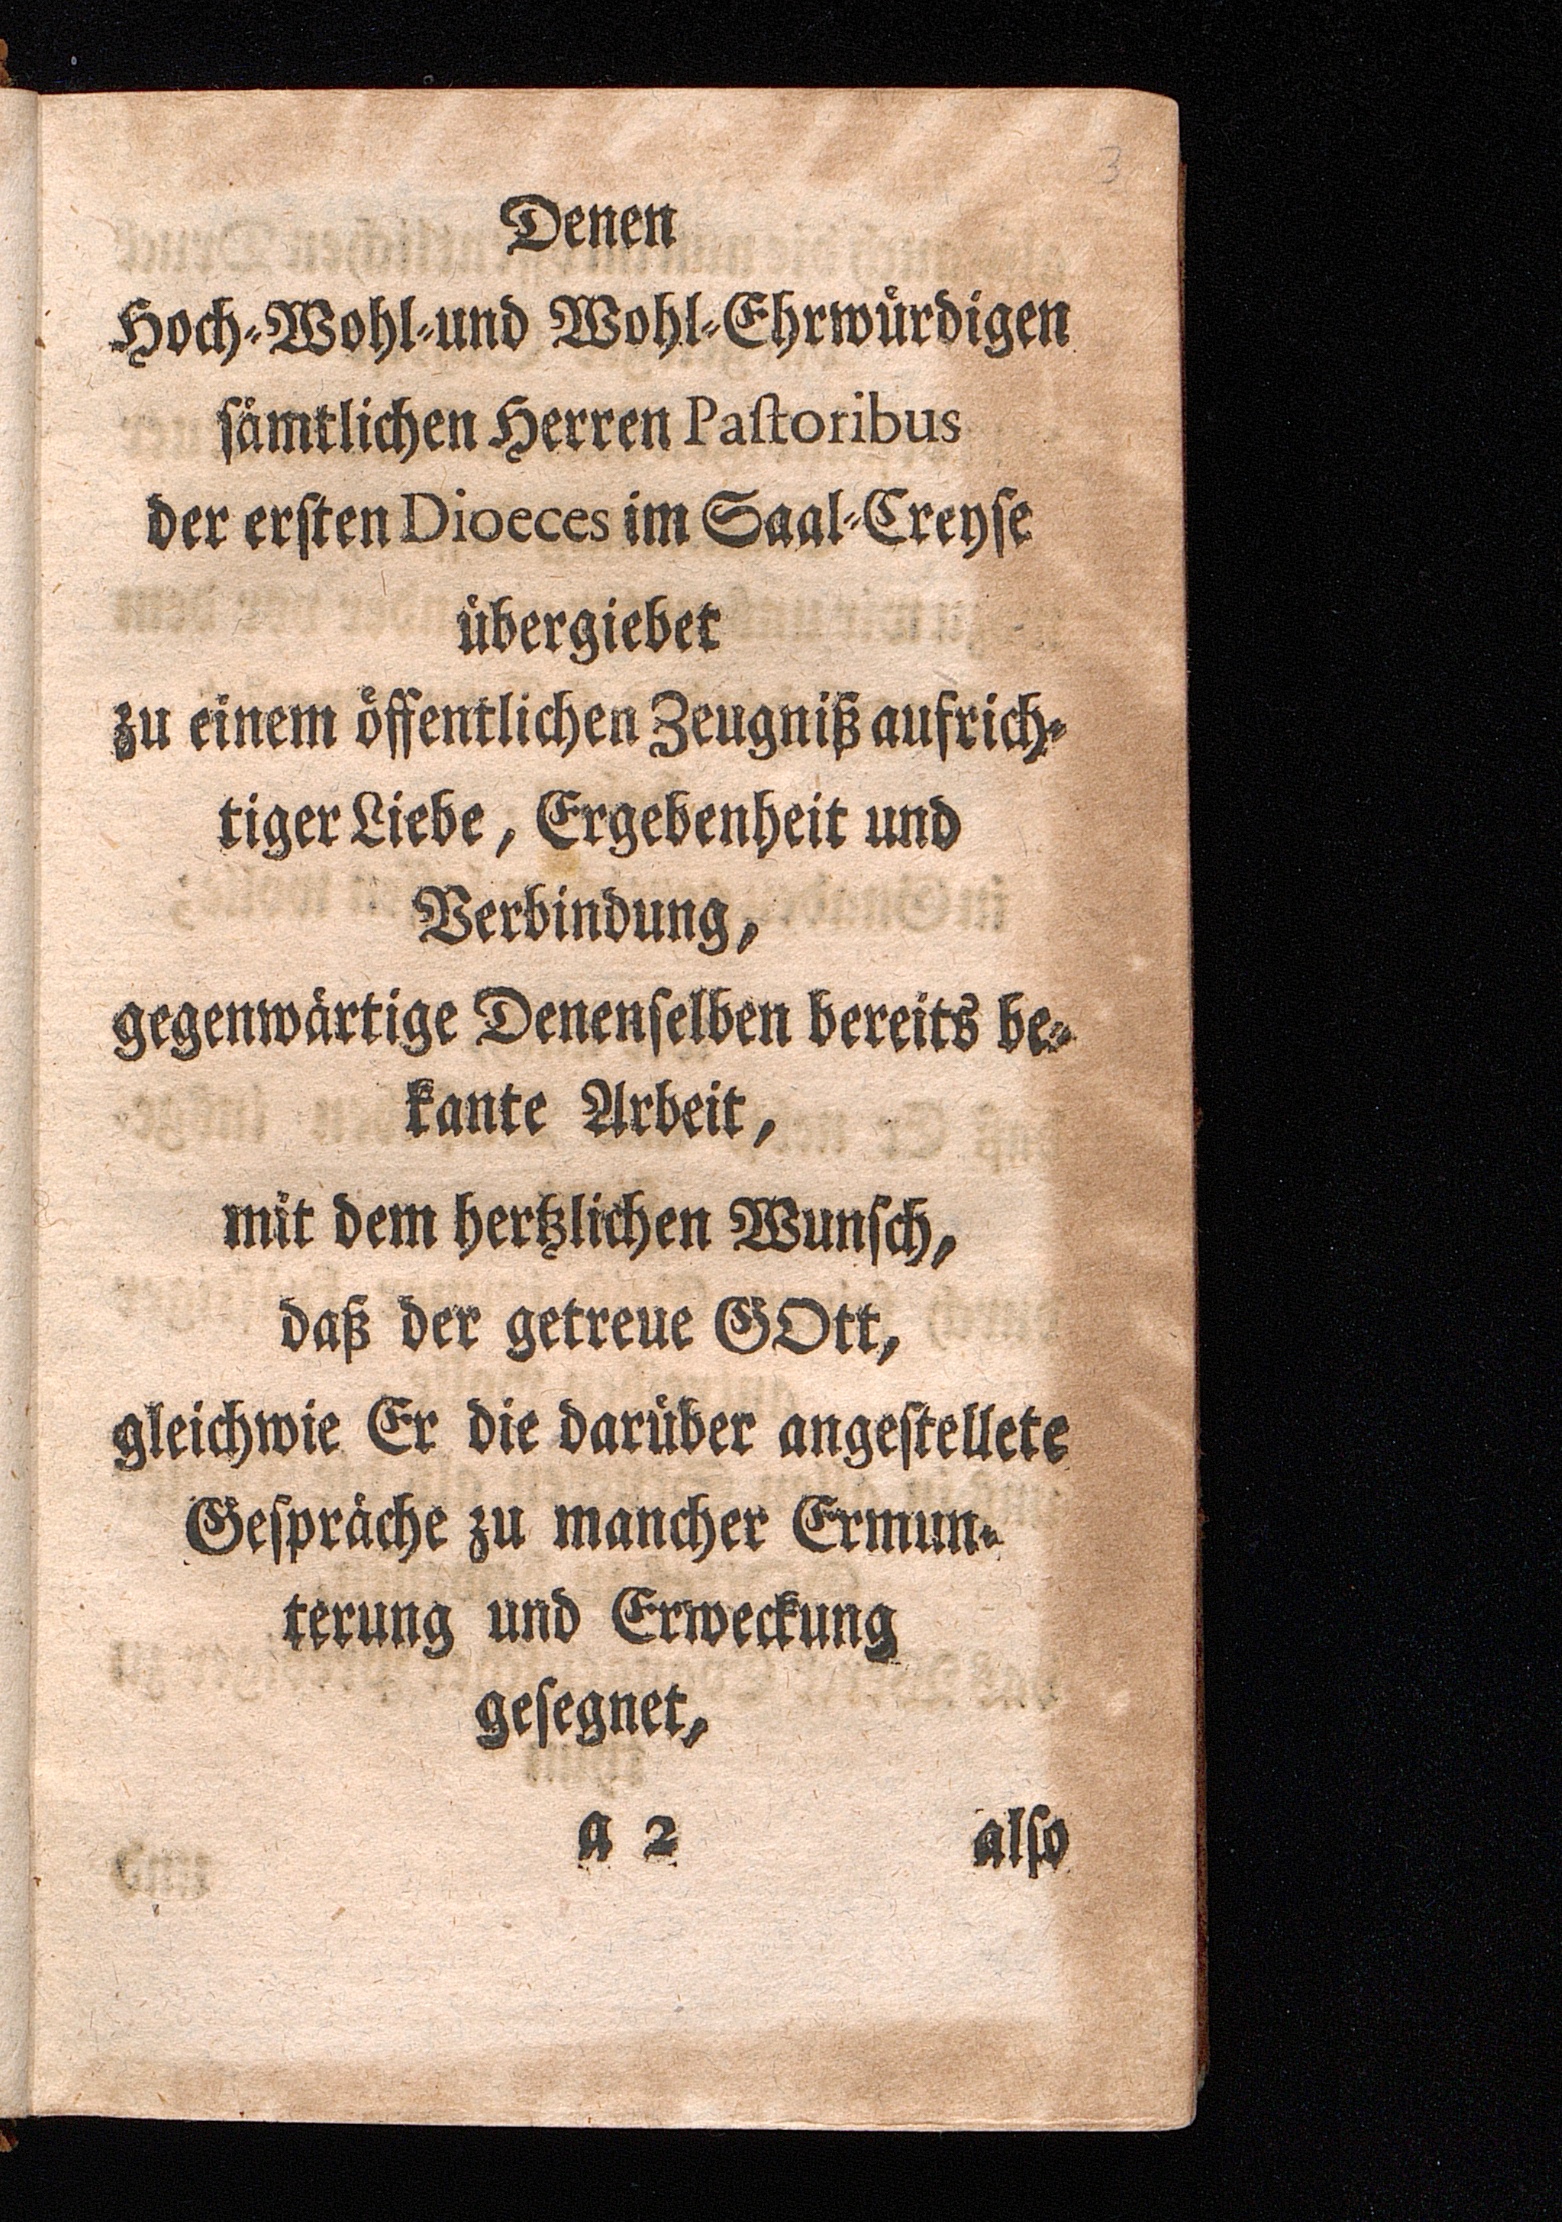 3
Denen
Hoch-Wohl-und Wohl-Ehrwürdigen
sämtlichen Herren Pastoribus
der ersten Dioeces im Saal-Creyse
übergiebet
zu einem öffentlichen Zeugniß aufrich-
tiger Liebe, Ergebenheit und
Verbindung,
gegenwärtige Denenselben bereits be-
kante Arbeit,
mit dem hertzlichen Wunsch,
daß der getreue GOtt,
gleichwie Er die darüber angestellete
Gespräche zu mancher Ermun-
terung und Erweckung
gesegnet,
a 2 also